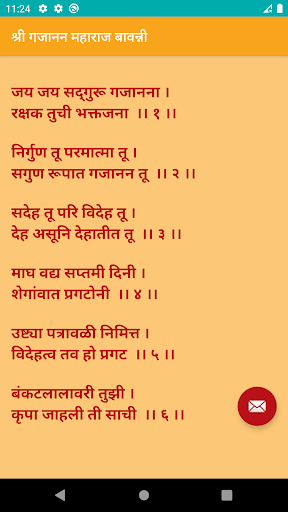 11:24
श्री गजानन महाराज बावन्नी
जय जय सद्‌गुरू गजानना ।
रक्षक तुची भक्तजना ।। १ ।।
निर्गुण तू परमात्मा तू ।
सगुण रूपात गजानन तू ।। २ ।।
सदेह तू परि विदेह तू ।
देह असूनि देहातीत तू ।। ३ ।।
माघ वद्य सप्तमी दिनी ।
शेगांवात प्रगटोनी ।। ४ ।।
उष्ट्या पत्रावळी निमित्त ।
विदेहत्व तव हो प्रगट ।। ५ ।।
बंकटलालावरी तुझी ।
कृपा जाहली ती साची ।। ६ ।।